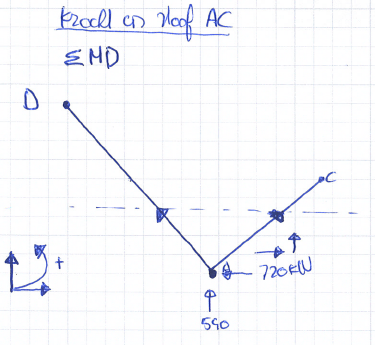 Kracht in staaf AC
ΣMD
D
C
+
A
720kN
590